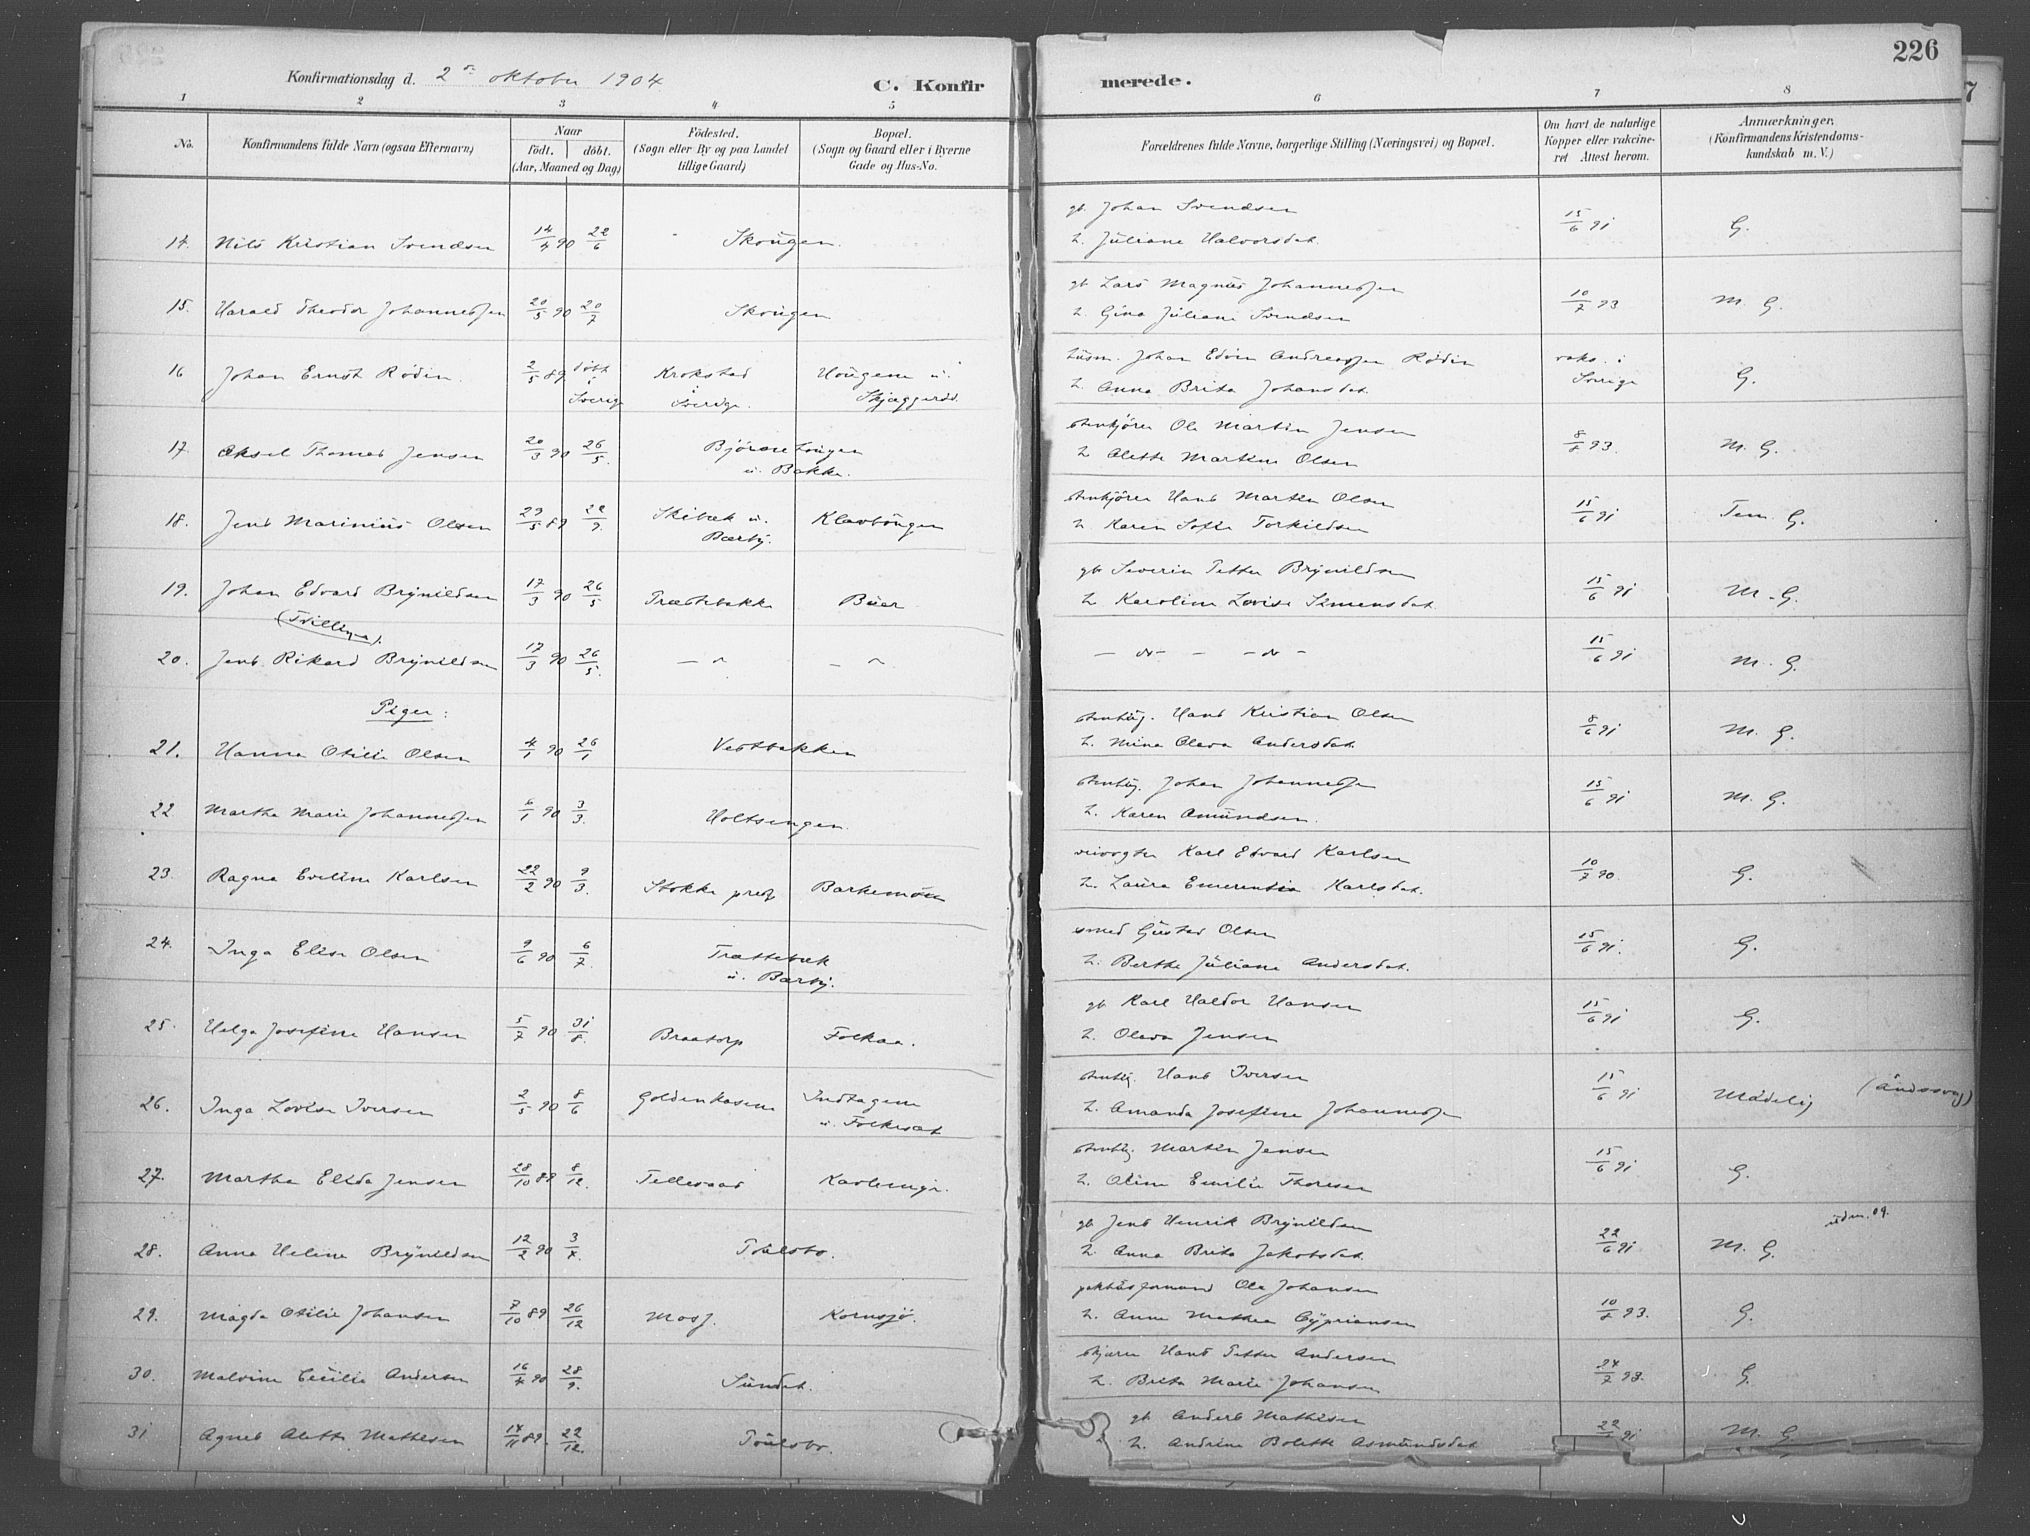 226
Konfirmationsdag d. 2den oktober 1904
C. Konfirmerede.
1 2 3 4 5 6 7 8
No.
Konfirmandens fulde Navn (ogsaa Efternavn)
Naar
født. døbt.
(Aar, Maaned og Dag)
Fødested.
(Sogn eller By og paa Landet
tillige Gaard)
Bopæl.
(Sogn og Gaard eller i Byerne
Gade og Hus-No.
Forældrenes fulde Navne, borgerlige Stilling (Næringsvei) og Bopæl.
Om havt de naturlige
Kopper eller vakcine-
ret Attest herom.
Anmærkninger.
(Konfirmandens Kristendoms-
kundskab m. V.)
14. Nils Kristian Svendsen 14/4 90 22/6 Skougen. gb. Johan Svendsen
h. Juliane Halvorsdat. 15/6 91 G.
15. Harald Theodor Johannessen 20/5 90 20/7 Skougen gb Lars Magnus Johannessen
h. Gina Juliane Svendsen 10/7 93 M. G.
16 Johan Ernst Rødin. 2/5 89 døbt i Sverig Krokstad i Sverige. Hougene u. Skjæggerød. husm. Johan Edvin Andreassen Rødin
h. Anna Brita Johansdat. vaks. i Sverige G.
17. Aksel Thomas Jensen 20/3 90 26/5. u. Bakke. stenhjører Ole Martin Jensen
h. Alette Martine Olsen 93. M. G.
18. Jens Marinius Olsen 29/5 89 22/9. Skibæk u. Bærby. stenhjører Hans Martin Olsen
h. Karen Sofie Torkildsen 15/6 91 Tem. G.
19. Johan Edvard Brynildsen 17/3 90 26/5 Træstebakke Buer gb Severin Petter Brynildsen
h Karoline Lovise Simensdat. 15/6 91 M. G.
(Tvillinger).
20. Jens Rikard Brynildsen 17/3 90 26/5. 15/6 91 M. G.
Piger:
21. Hanna Otilie Olsen 4/1 90 26/1 Vestbakken stenhug. Hans Kristian Olsen
h. Mina Olava Andersdat. 8/6 91 M. G.
22 Martha Marie Johannessen 6/1 90 3/3. Holtsengen. stenhug. Johan Johannessen
h. Karen Amundsen. 15/6 91 M. G.
23. Ragna Eveline Karlsen 22/2 90 9/3. Stokke præg Barkemoen veivogter Karl Edvard Karlsen
h. Laura Emerentia Karlsdat. 10/7 90. G.
24. Inga Elise Olsen 9/6 90 6/7. Trættebæk
u. Bærby. smed Gustav Olsen
h. Berthe Juliane Andersdat. 15/6 91. G.
25. Helga Josefine Hansen 5/7 90 31/8. Braatorp Folkaa. gb. Karl Haldor Hansen
h. Olava Jensen 15/6 91 G.
26. Inga Lovise Iversen 2/5 90 8/6 Goldenkasene Indtagene
u. Folkesæt stenhg. Hans Iversen
h. Amanda Josefine Johannessen 15/6 91 Mådelig (åndssvag)
27. Martha Elida Jensen 28/10 89 8/12. stenhg. Martin Jensen
h. Oline Emilie Thoresen 15/6 91 G.
28. Anna Helene Brynildsen 12/2 90 3/4. Toulsbo. gb. Jens Henrik Brynildsen
h. Anna Brita Jakobsdat. 22/6 91 M. G. udm. 09.
29. Magda Otilie Johansen 7/10 89 26/12 Moss. Kornsjø. pakhusformand Ole Johansen
h. Anne Mathea Cyprianson 93. G.
30. Malvine Cecilie Andersen 16/4 90 28/9. Sundet. Hans Petter Andersen
h. Brita Marie Johansen 24/7 93. G.
31 Agnes Alette Mathisen 14/11 89. 22/12. Toulsbo. gb. Anders Mathisen
h. Andrine Bolette Asmundsdat 91 M. G.